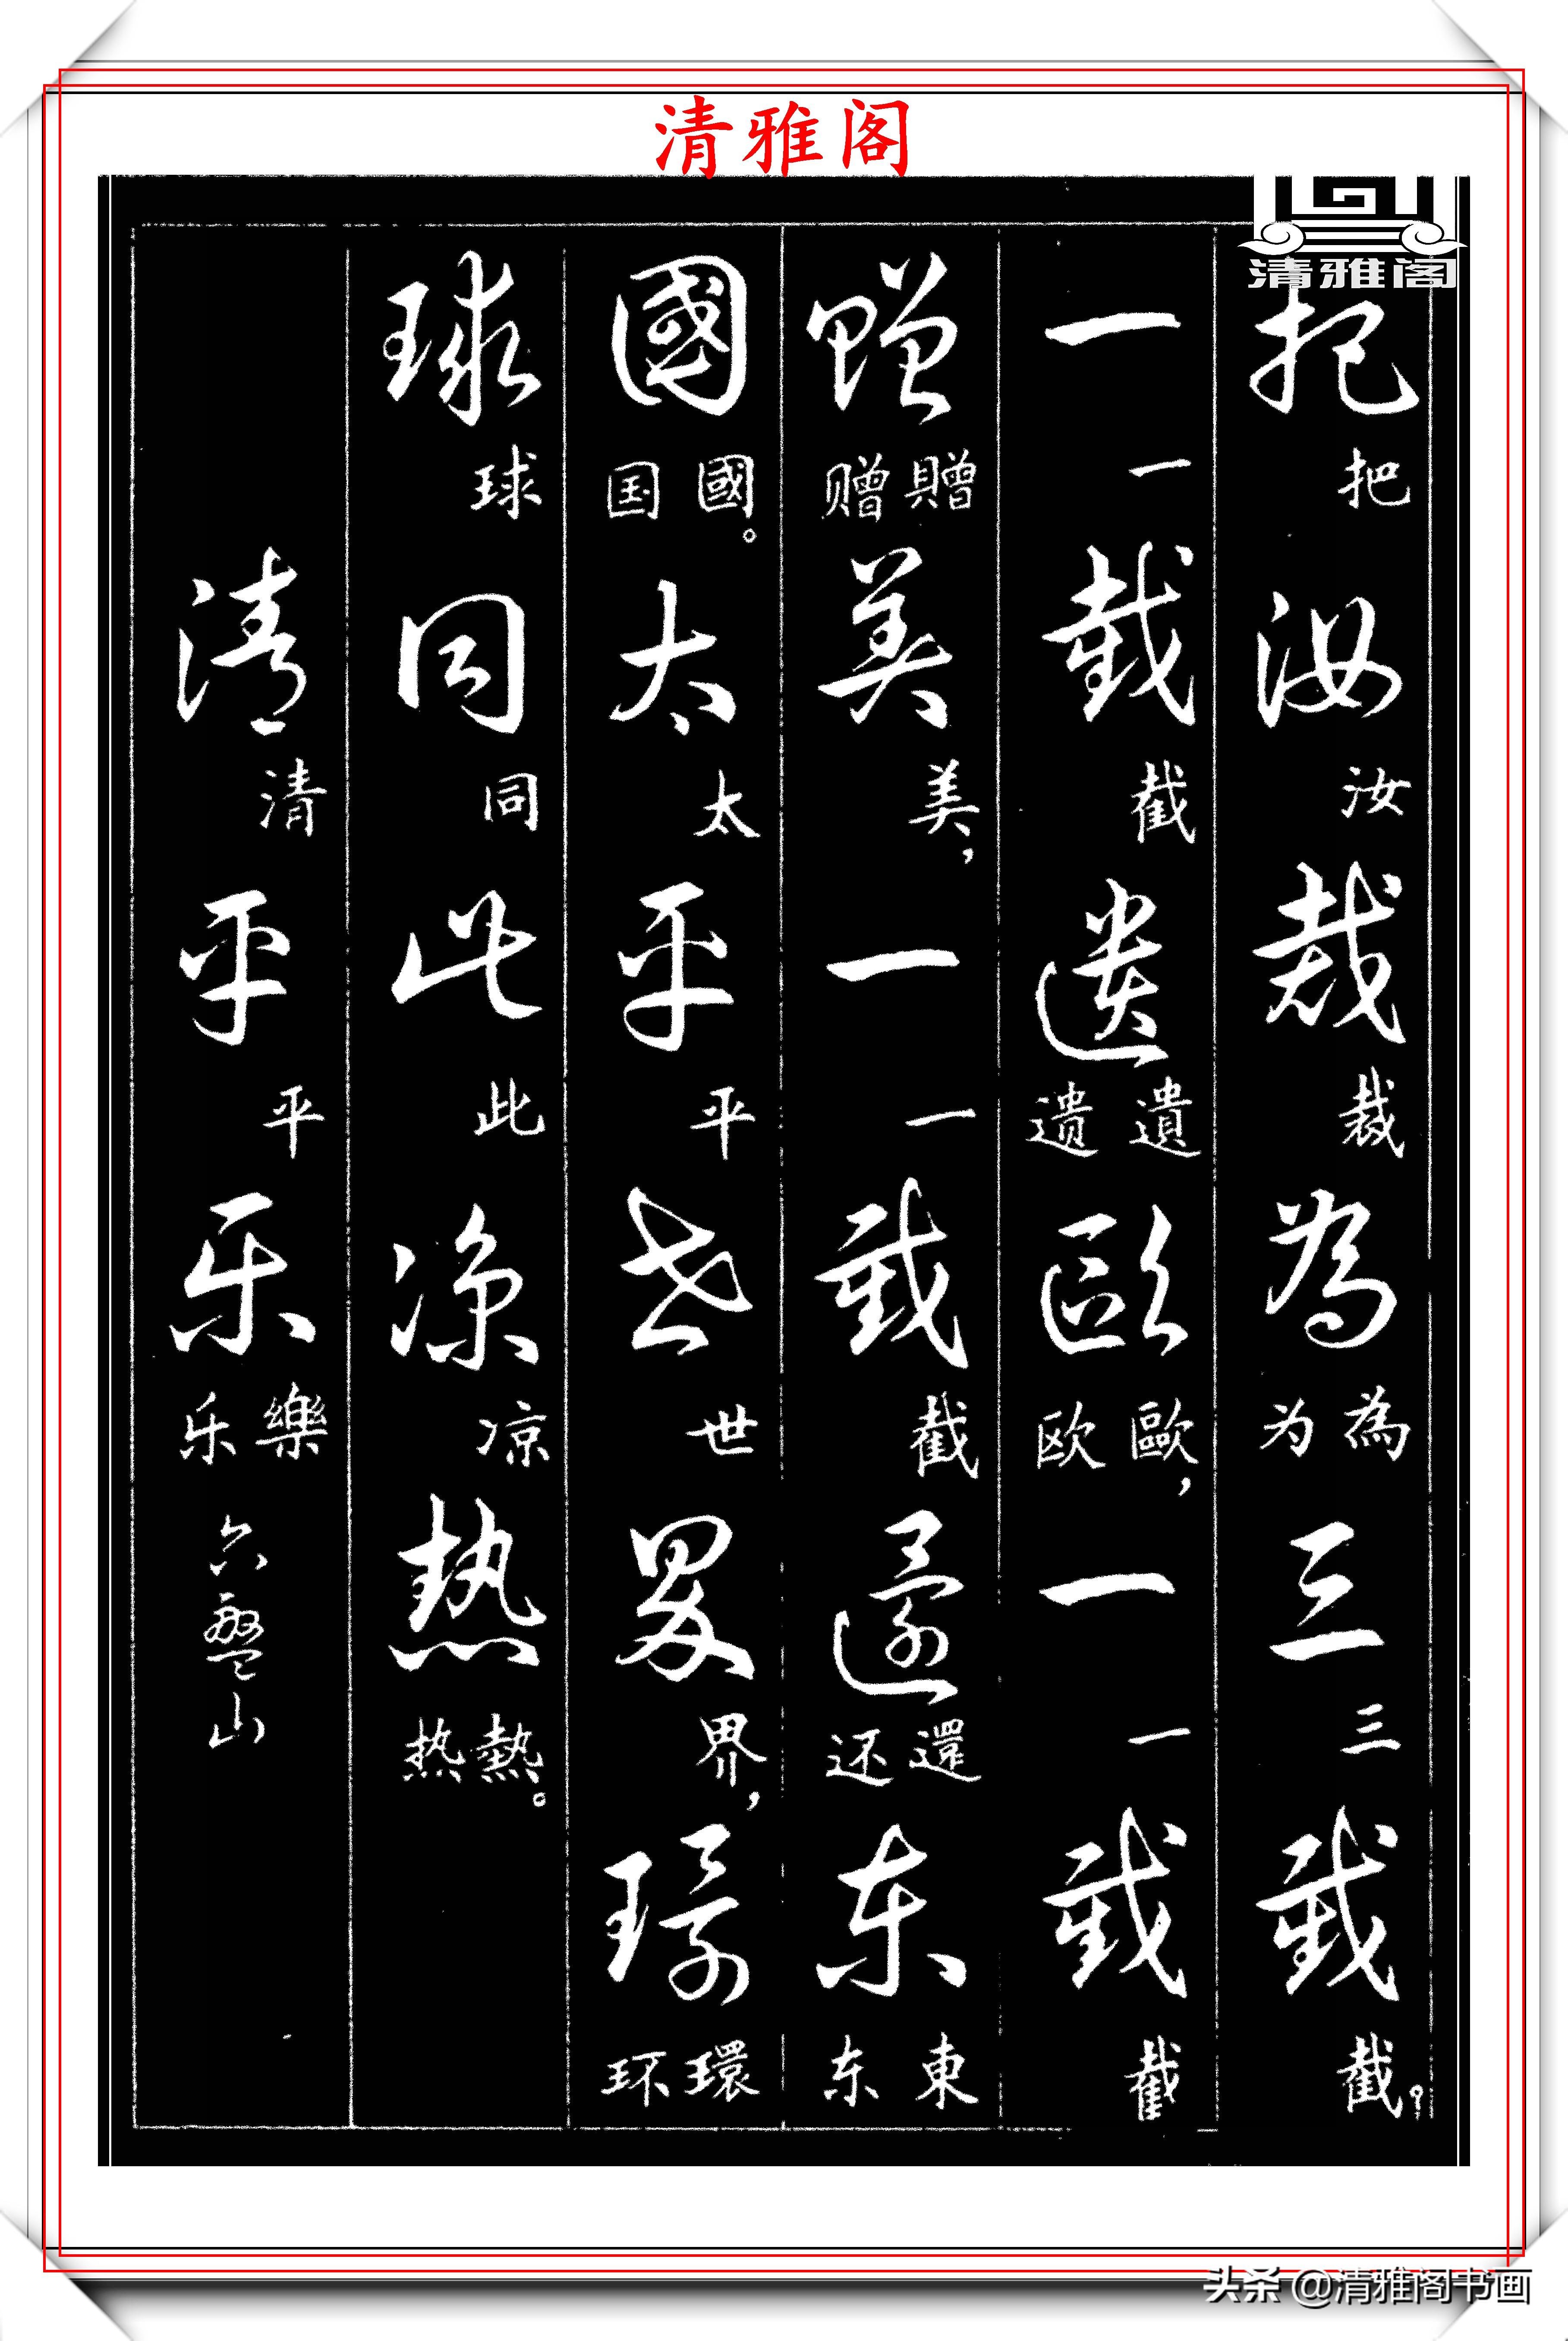 清雅阁
清雅阁
把把汝汝裁裁為為为三三截截？
一一截截遺遺遗歐歐，欧一一截截
贈贈赠美美，一一截截還還还東東东
國國。国太太平平世世界界，環環环
球球同同此此凉凉熱熱。热
清清平平樂樂乐六盤山
头条 @清雅阁书画